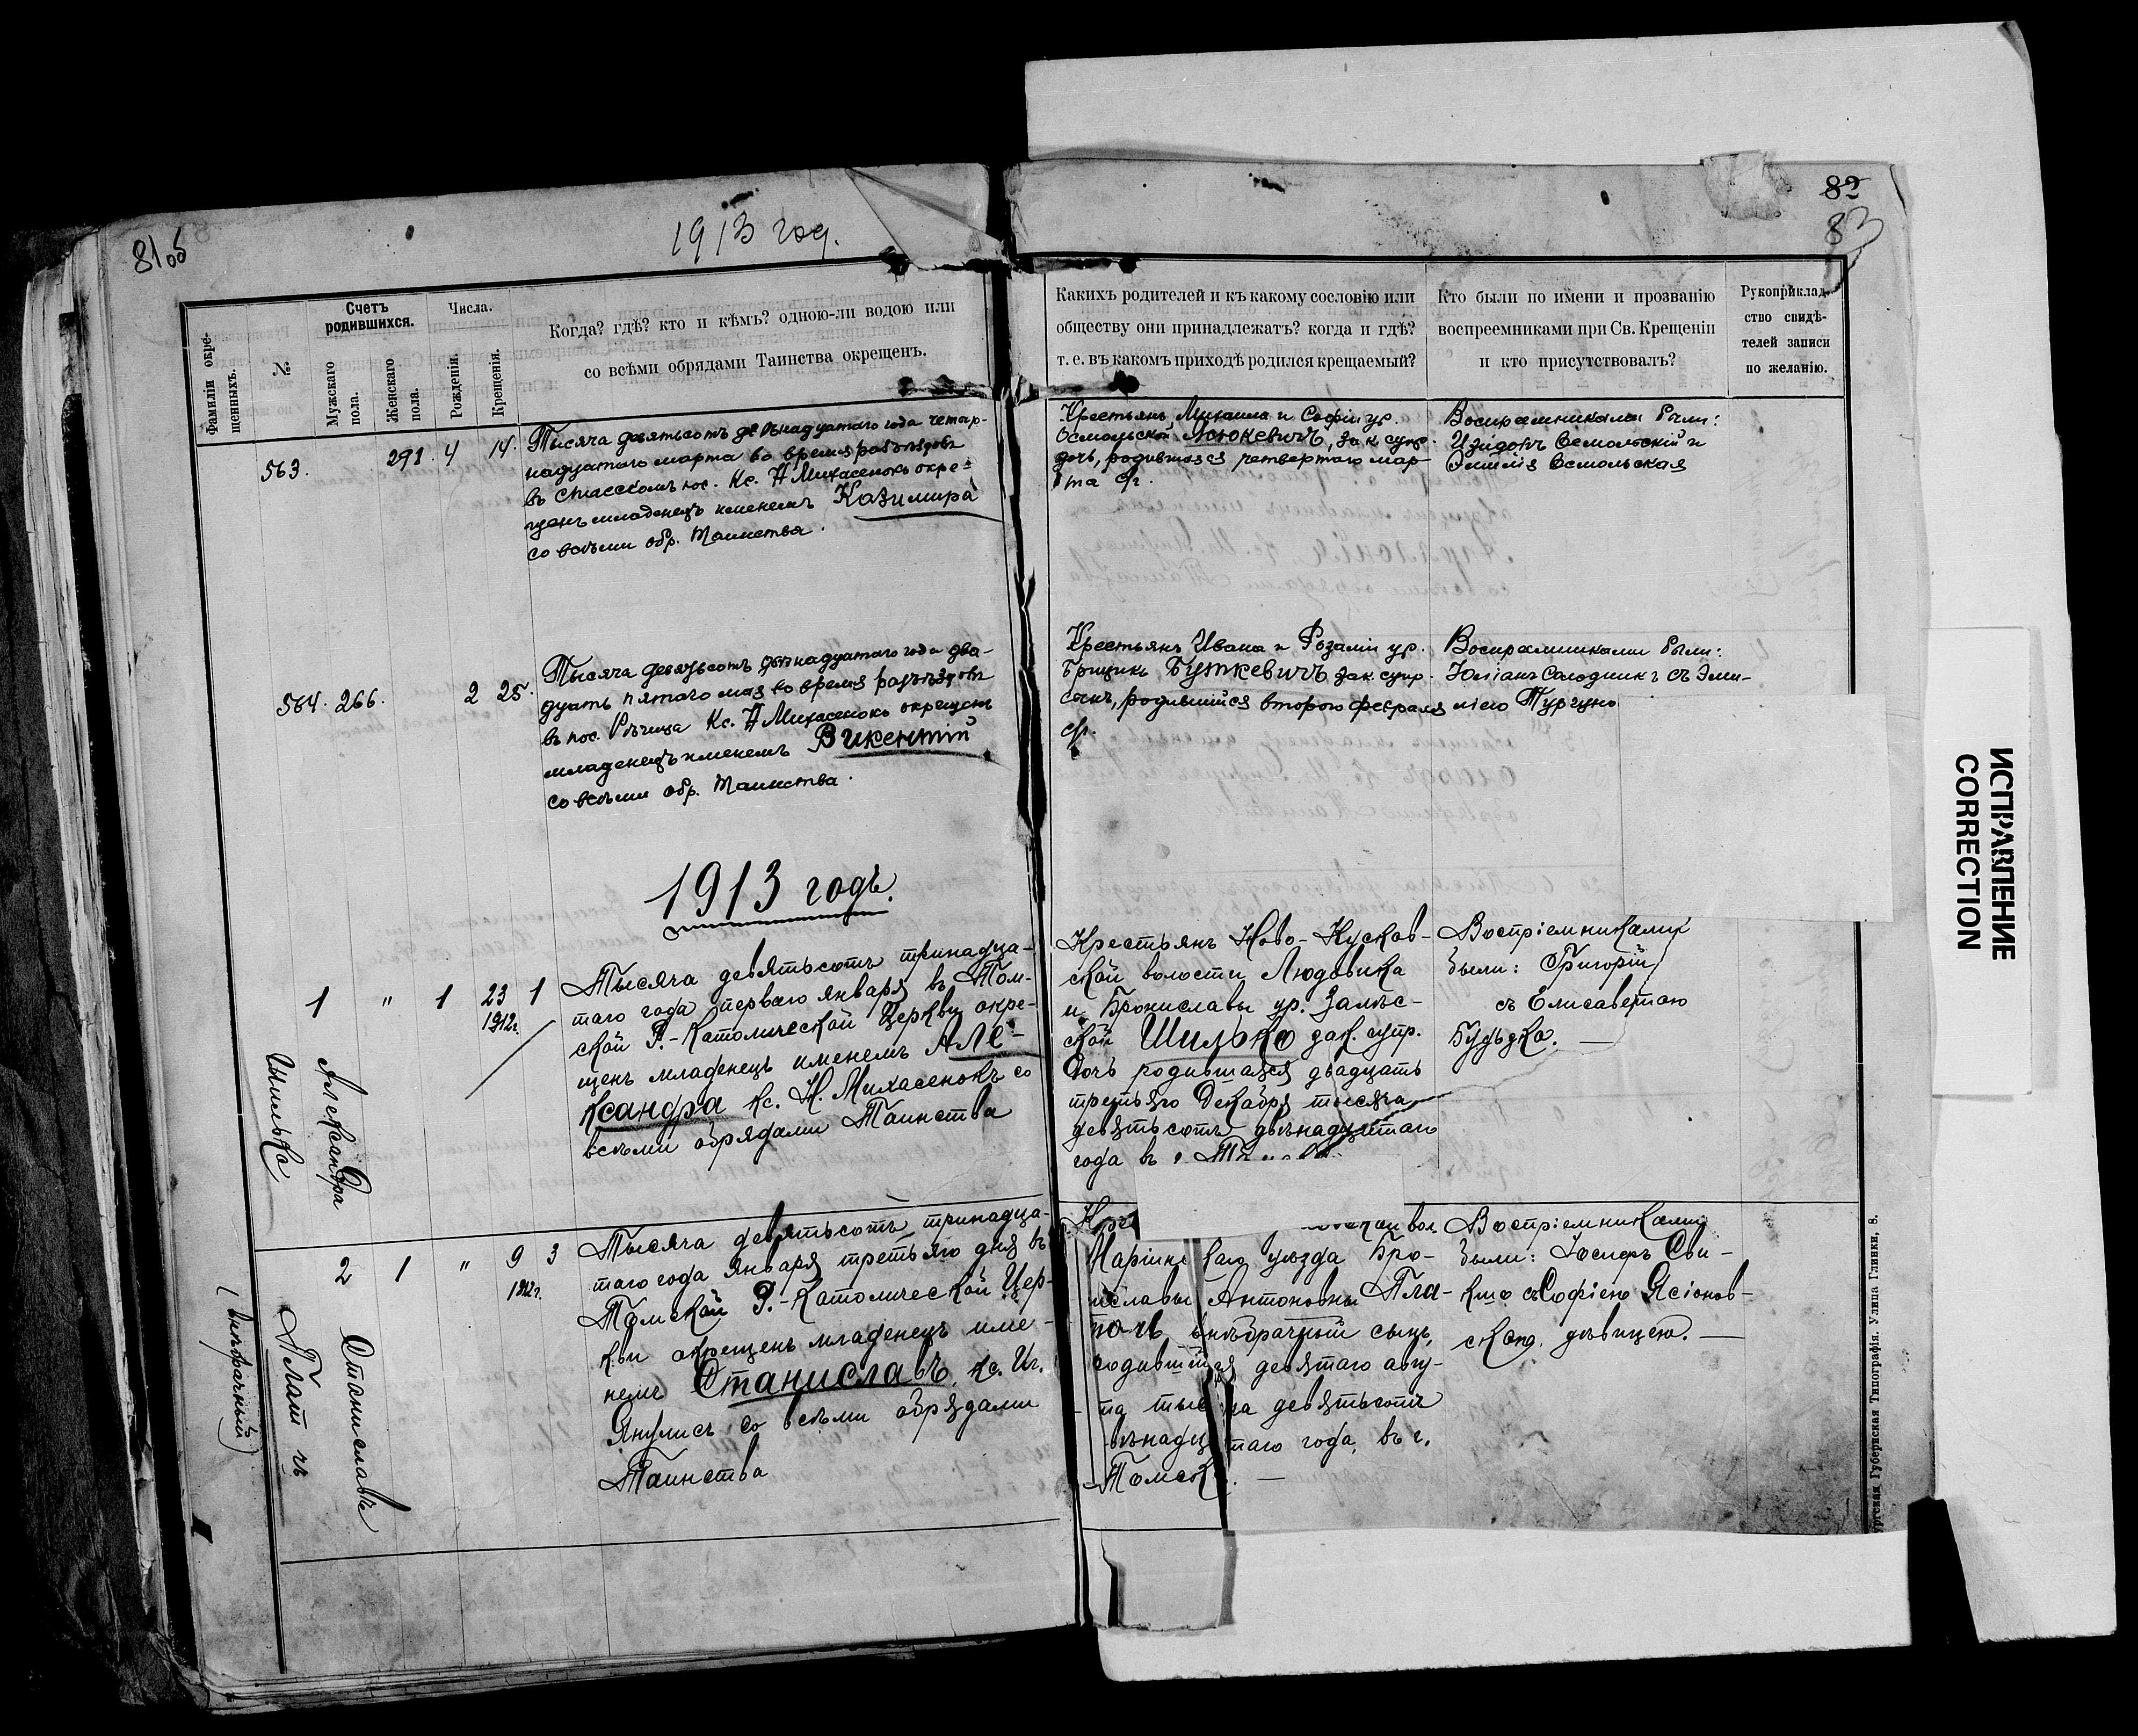 81об
1913 год.
Фамиліи окре-
щенныхъ.
№
Счетъ
родившихся.
Мужскаго
пола.
Женскаго
пола.
Числа.
Рожденія.
Крещенія.
Когда? гдѣ? кто и кѣмъ? одною-ли водою или
со всѣми обрядами Таинства окрещенъ.
563. 291. 4 14.
Тысяча девятьсотъ двѣнадцатаго года четыр-
надцатаго марта во время разъѣздовъ
въ Спасскомъ пос. Кс. Н Михасенокъ окре-
щенъ младенецъ именемъ Казимира
со всѣми обр. Таинства.
564. 266. 2 25.
Тысяча девятьсотъ двѣнадцатаго года два-
дцать пятаго мая во время разъѣздовъ
въ пос. Рѣчица Кс. Н Михасенокъ окрещенъ
младенецъ именемъ Викентій
со всѣми обр. Таинства.
1913 годъ.
1 " 1 23 1
1912г.
Шилько
Александра
Тысяча девятьсотъ тринадца-
таго года перваго января въ Том-
ской Р.-Католической Церкви окре-
щенъ младенецъ именемъ Але-
ксандра кс. Н. Михасенокъ со
всѣми обрядами Таинства
2 1 " 9 3
1912г.
(внѣбрачный)
Плат чъ
Станиславъ
Тысяча девятьсотъ тринадца-
таго года января третьяго дня въ
Томской Р.-Католической Цер-
кви окрещенъ младенецъ име-
немъ Станиславъ, кс. Иг.
Янулисъ со всѣми обрядами
Таинства
82
83
Какихъ родителей и къ какому сословію или
обществу они принадлежатъ? когда и гдѣ?
т. е. въ какомъ приходѣ родился крещаемый?
Кто были по имени и прозванію
воспреемниками при Св. Крещеніи
и кто присутствовалъ?
Рукоприклад-
ство свидѣ-
телей записи
по желанію.
Крестьянъ Михаила и Софіи ур.
Осмольской зак. супр.
дочь, родившаяся четвертаго мар-
та с/г.
Воспремниками были:
Изидоръ Осмольскій и
Эмилія Осмольская
Крестьянъ Ивана и Розаліи ур.
Брицикъ Буткевичъ зак. супр.
сынъ, родившійся второго февраля
с/г.
Воспремниками были:
Юліанъ Солодникъ съ Эми-
ліею Турчино
Крестьянъ Ново-Кусков-
ской волости Людовика
и Брониславы ур. Залѣс-
ской Шилько зак. супр.
дочь родившаяся двадцать
третьяго Декабря тысяча
девятьсотъ двѣнадцатаго
года въ г.
Воспріемниками
были: Григорій
съ Елисаветою
Будько. —
вол.
Маріинскаго уѣзда Бро-
ниславы Антоновны Пла-
внѣбрачный сынъ,
родившійся девятаго авгу-
та тысяча девятьсотъ
двѣнадцатаго года, въ г.
Томскѣ. —
Воспріемниками
были: Іосифъ Сви-
съ Софіею Ясіонов-
скою, дѣвицею. —
Губернская Типографія. Улица Глинки, 8.
ИСПРАВЛЕНИЕ
CORRECTION